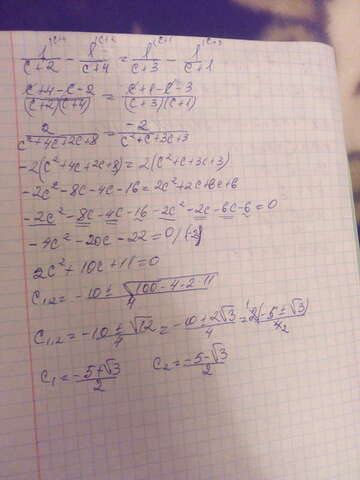 1^{\c+4} / c+2 - 1^{\c+2} / c+4 = 1^{\c+1} / c+3 - 1^{\c+3} / c+1
c+4-c-2 / (c+2)(c+4) = c+1-c-3 / (c+3)(c+1)
2 / c²+4c+2c+8 = -2 / c²+c+3c+3
-2(c²+4c+2c+8) = 2(c²+c+3c+3)
-2c²-8c-4c-16 = 2c²+2c+6c+6
-2c²-8c-4c-16-2c²-2c-6c-6=0
-4c²-20c-22=0/(-2)
2c²+10c+11=0
c1,2 = -10±√100-4·2·11 / 4
c1,2 = -10±√12 / 4 = -10±2√3 / 4 = 2(-5±√3) / 4 2
c1 = -5+√3 / 2 c2 = -5-√3 / 2